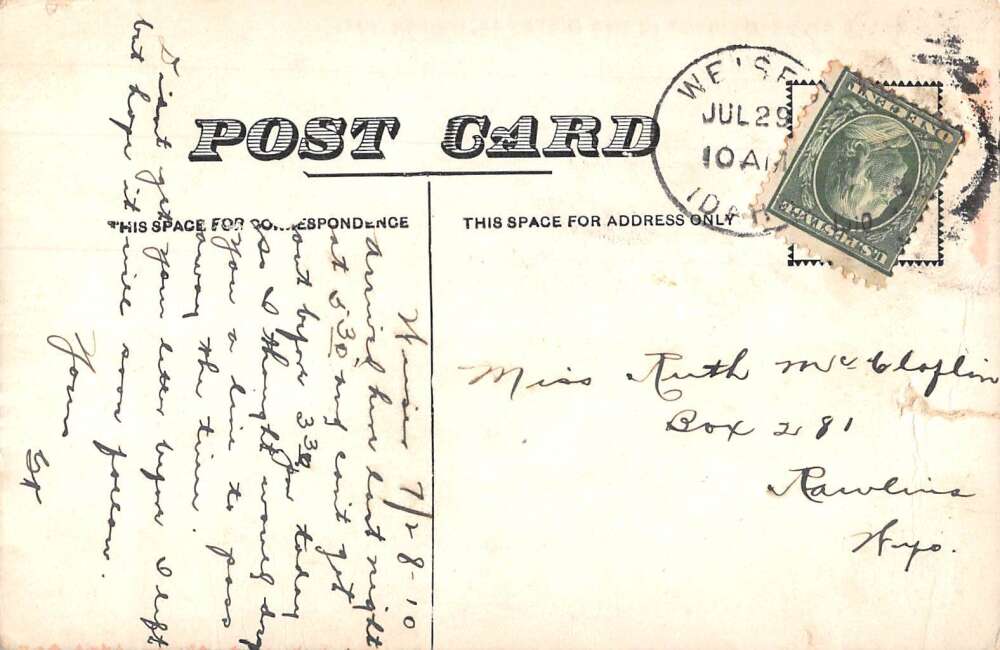 POST CARD
THIS SPACE FOR CORRESPONDENCE
THIS SPACE FOR ADDRESS ONLY
WEISER
JUL 29
10 AM
IDAHO
U.S. POSTAGE
ONE CENT
Weiser 7/28-10
Arrived here last night
at 5 30 and can't get
out before 3 30 today
so I thought would drop
you a line to pass
away the time.
Didnt get your letter before I left
but hope it will soon follow.
Yours
Miss Ruth McClaflin
Box 281
Rawlins
Wyo.